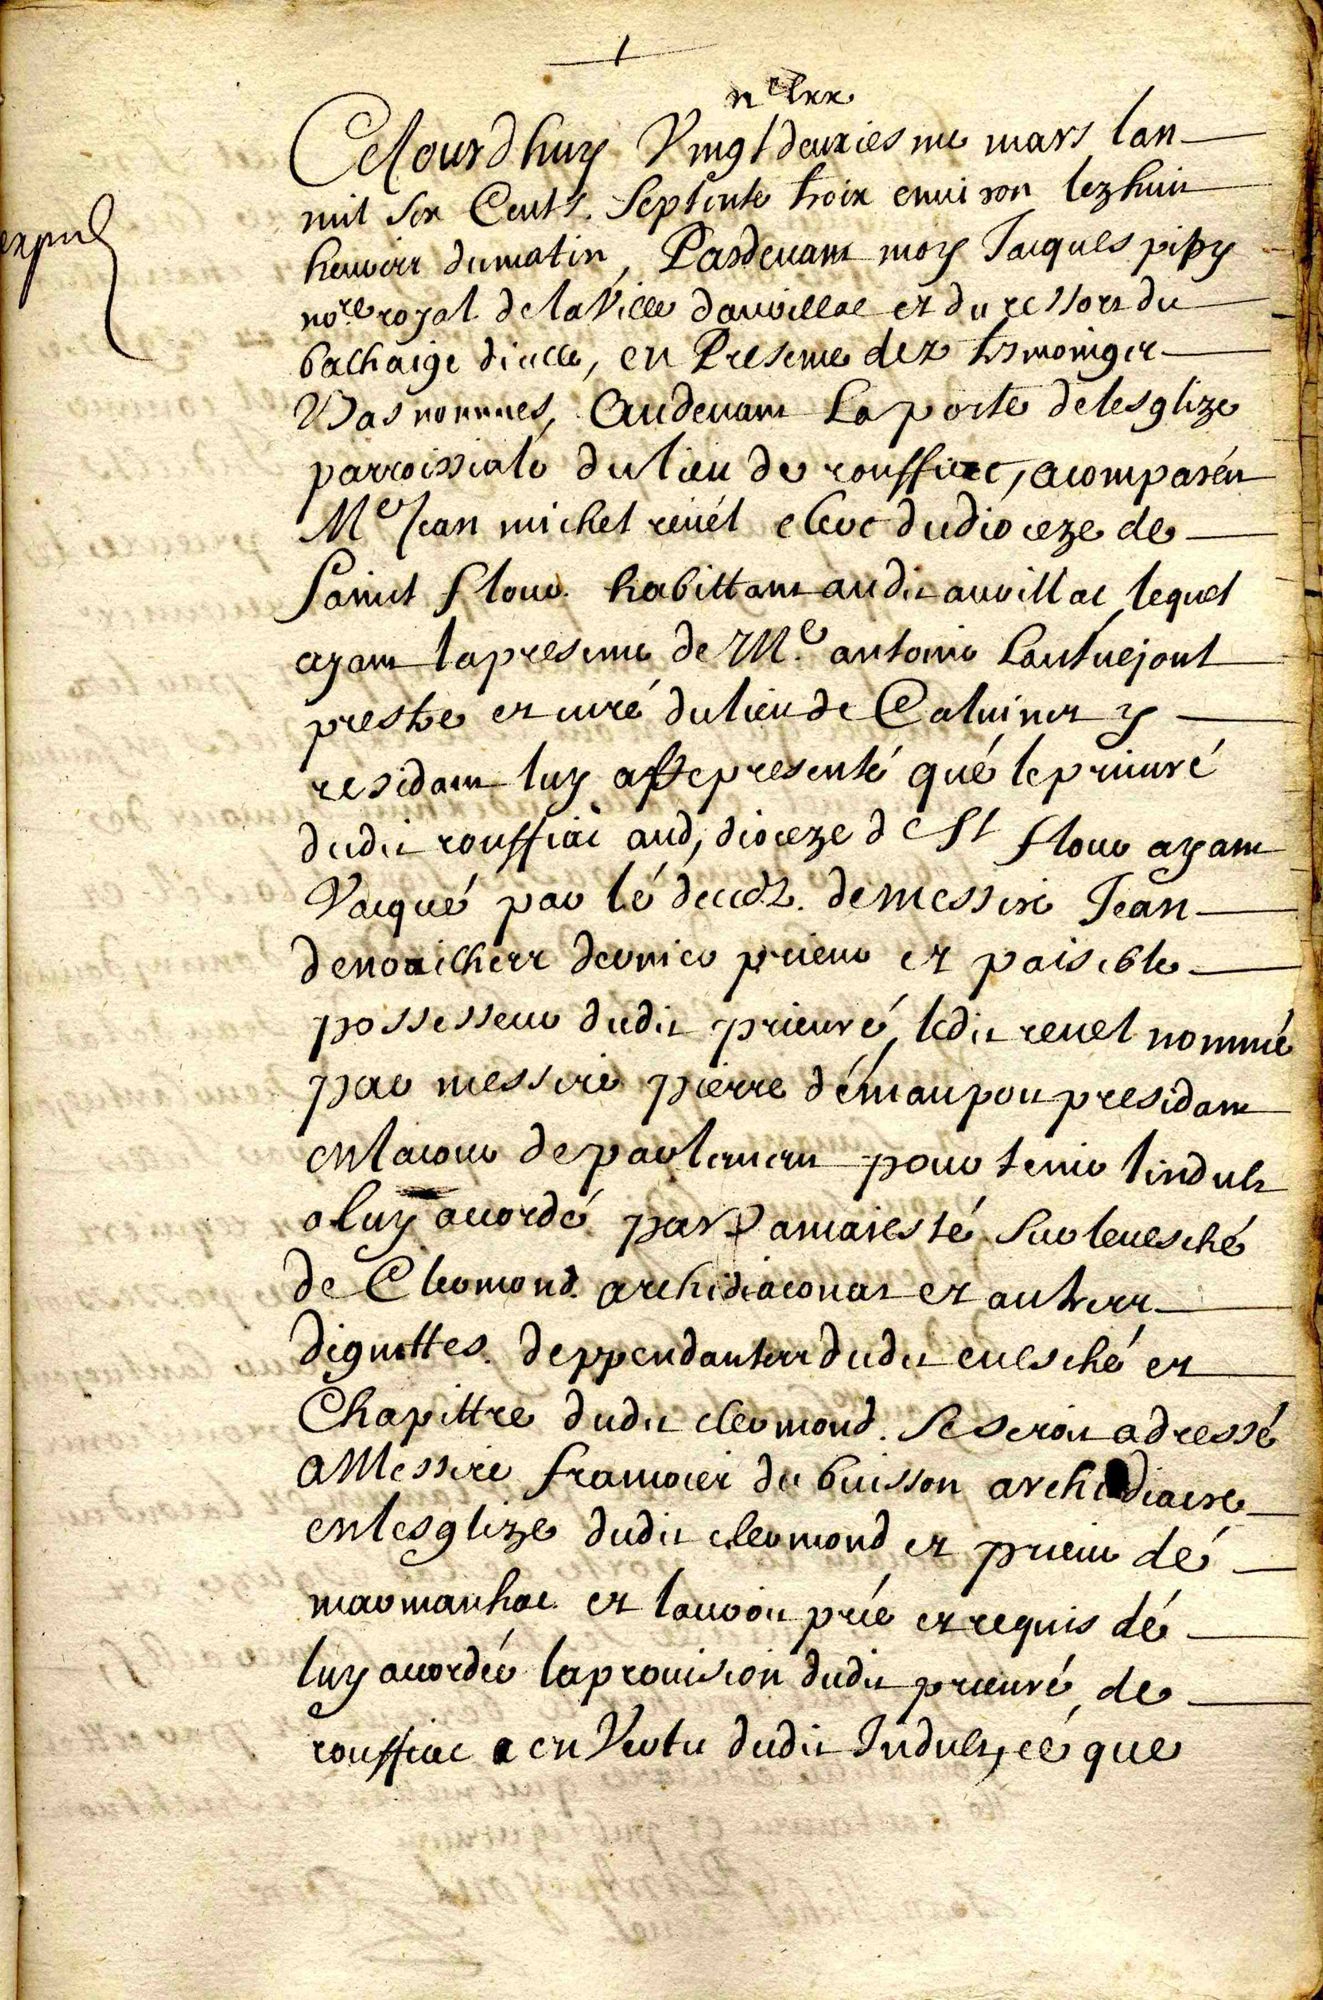 1
n° lxx
Cejourdhuy Vingt deuxiesme mars lan
mil six Cents Septente troix environ lez huit
heures du matin, Pardevant moy Jacques pipy
no.re royal de la Ville dauvillac et du ressort du
bailhaige dicelle, en Presence dez tesmoingz
bas nommes, Audevant La porte de lesglize
parroissiale du lieu de rouffiac, a comparéu
Me Jean michel revél clerc du dioceze de
Saint flour habittant audit auvillac lequel
ayant la presence de Me antoine Lantuejoul
prestre et curé du lieu de Calvinet y
residant luy a representé qué le prieuré
dudit rouffiac aud, dioceze de St flour ayant
Vacqué par lé decedz de messire Jean
denoailhers dernier prieur et paisible
possesseur dudit prieuré, ledit revel nommé
par messire pierre démaupou presidant
en la cour de parlement pour tenir lindult
a luy acordé par Sa maiesté Sur levesché
de Clermond archidiaconat et autres
dignittes deppendantes dudit evesché et
Chapittre dudit clermond. Se seroit adressé
a Messire francoies du buisson archidiacre
en lesglize dudit clermond et prieur dé
marmanhac et lauroit prié et requis dé
luy acordér la provision dudit prieuré de
rouffiac en Vertu dudit Indult, cé que